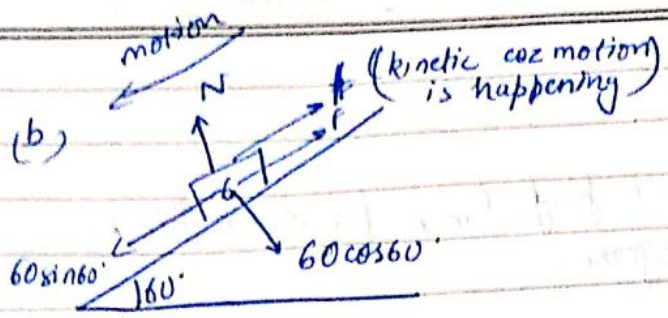 motion
(kinetic coz motion
is happening)
(b)
N
f
60sin60°
60cos60°
60°